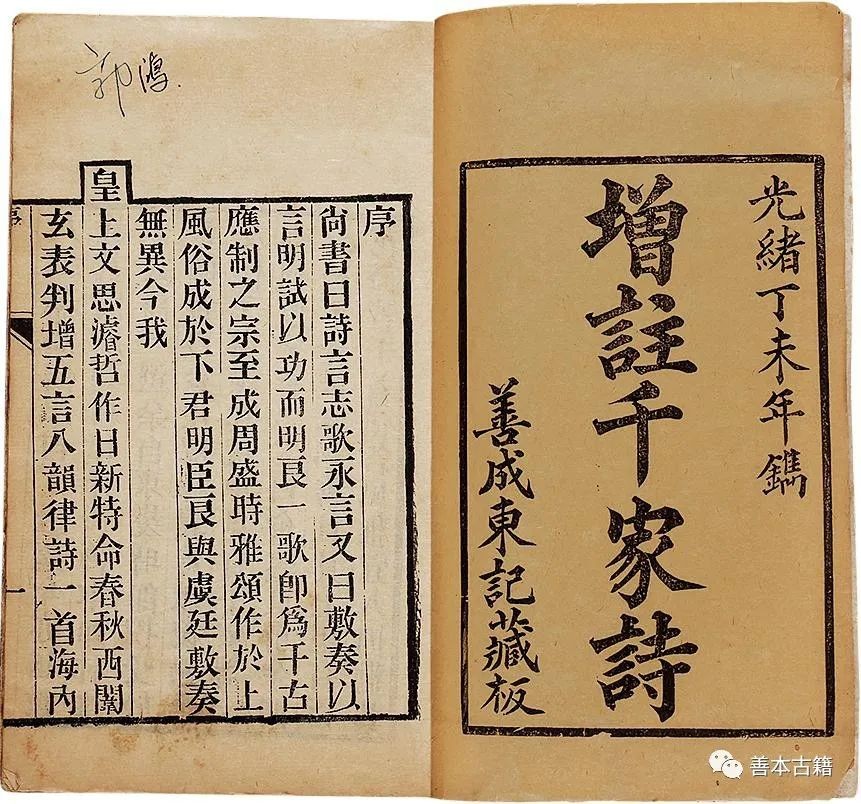 光緒丁未年鐫
增註千家詩
善成東記藏板
序
尚書曰詩言志歌永言又曰敷奏以
言明試以功而明良一歌卽爲千古
應制之宗至成周盛時雅頌作於上
風俗成於下君明臣良與虞廷敷奏
無異今我
皇上文思濬哲作日新特命春秋西闈
玄表判增五言八韻律詩一首海內
序
一
善本古籍